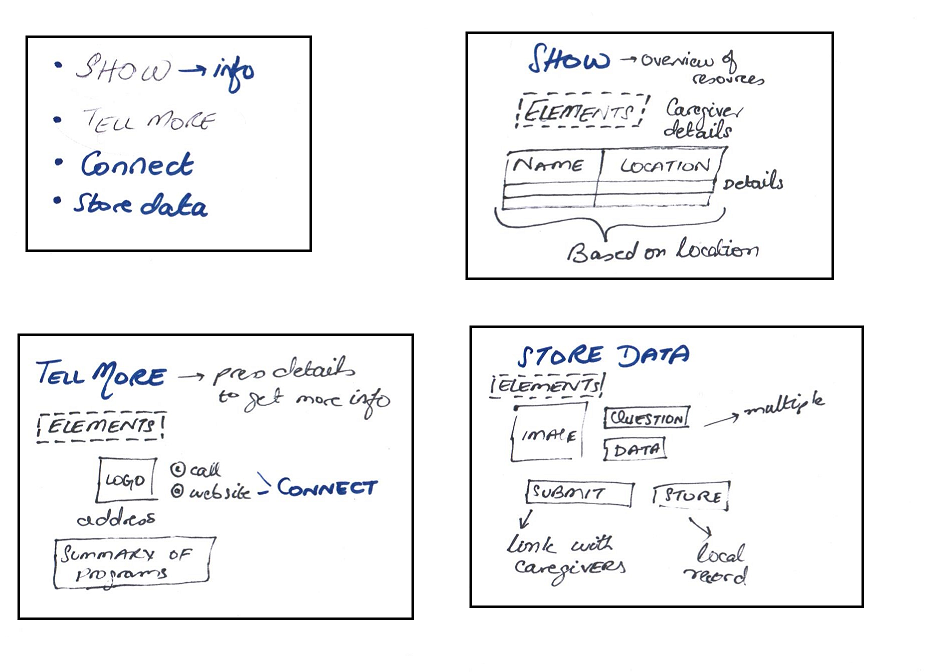 • SHOW → info
• TELL MORE
• Connect
• Store data
SHOW → overview of
resources
ELEMENTS
Caregiver
details
NAME LOCATION
Details
Based on location
TELL MORE → press details
to get more info
ELEMENTS
LOGO
call
website - CONNECT
address
SUMMARY OF
programs
STORE DATA
ELEMENTS
IMAGE
QUESTION → multiple
DATA
SUBMIT STORE
link with
caregivers
local
record